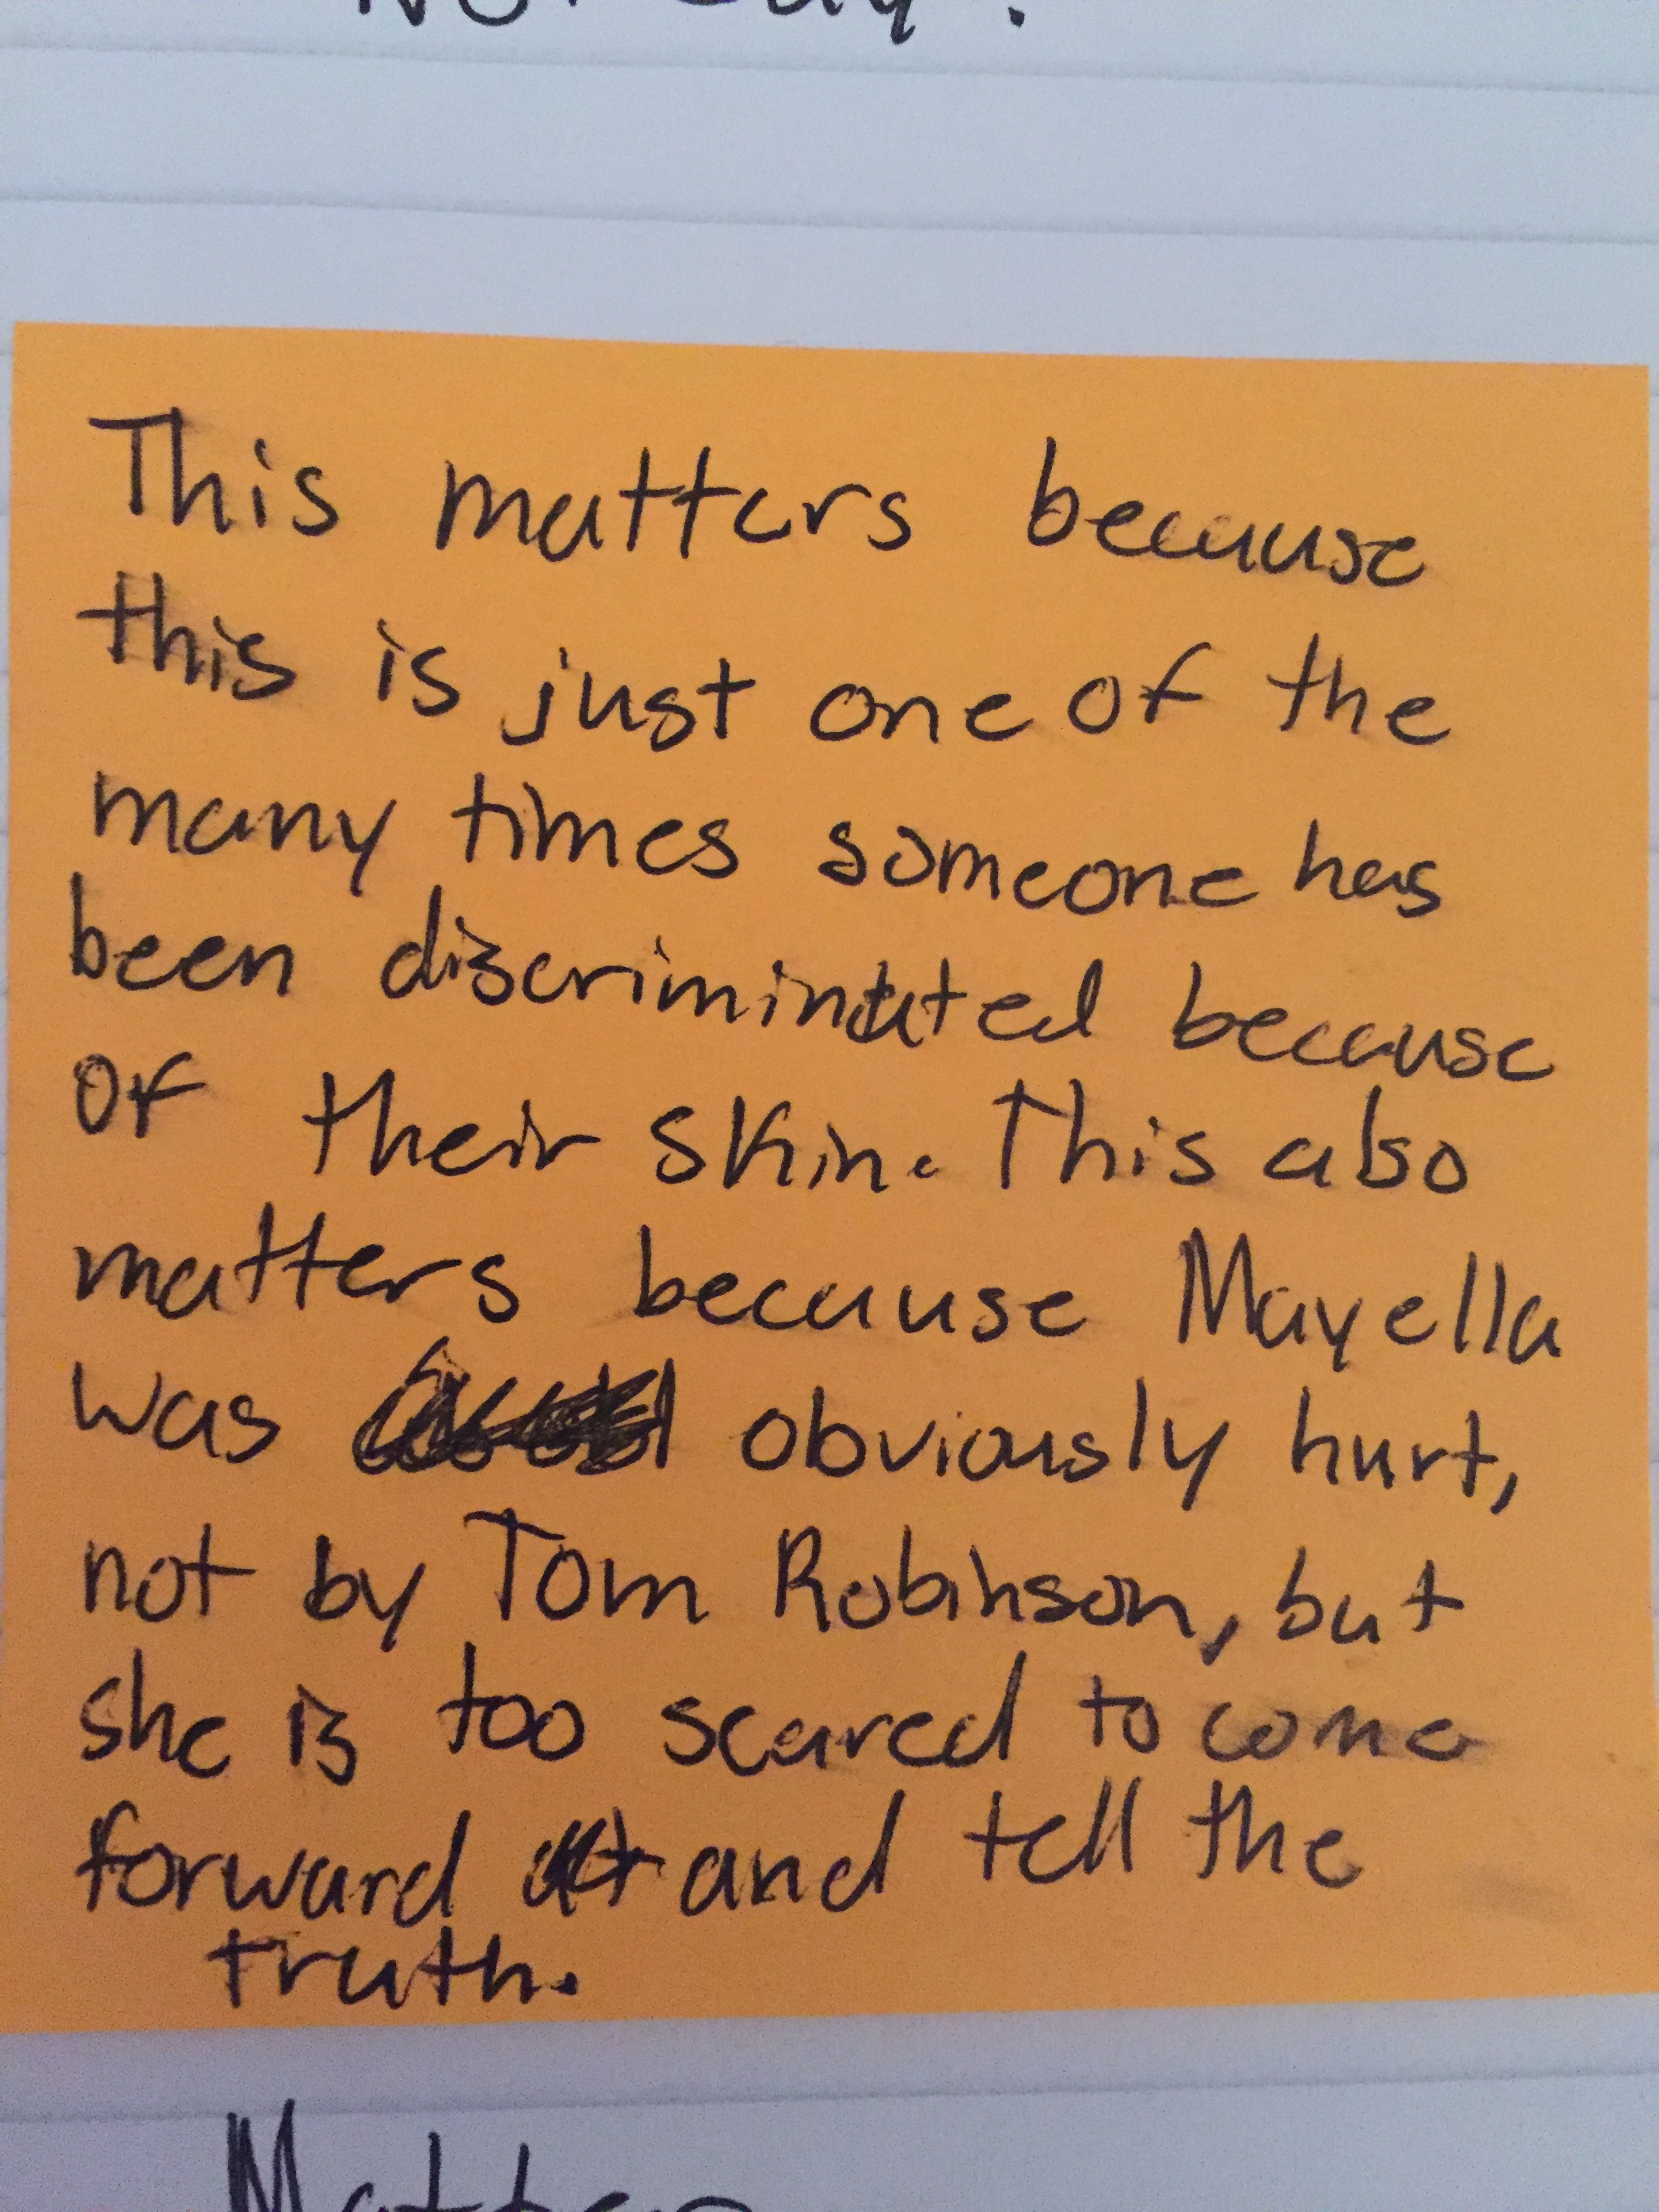 This matters because
this is just one of the
many times someone has
been discriminated because
of their skin. This also
matters because Mayella
was obviously hurt,
not by Tom Robinson, but
she is too scared to come
forward and tell the
truth.